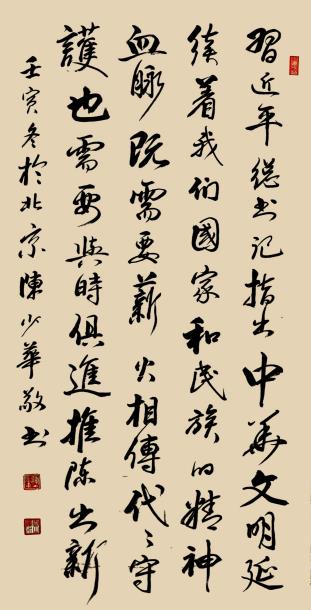 習近平總书记指出中華文明延
续着我们國家和民族的精神
血脉既需要薪火相傳代々守
護也需要與時俱進推陈出新
壬寅冬於北京陳少華敬书